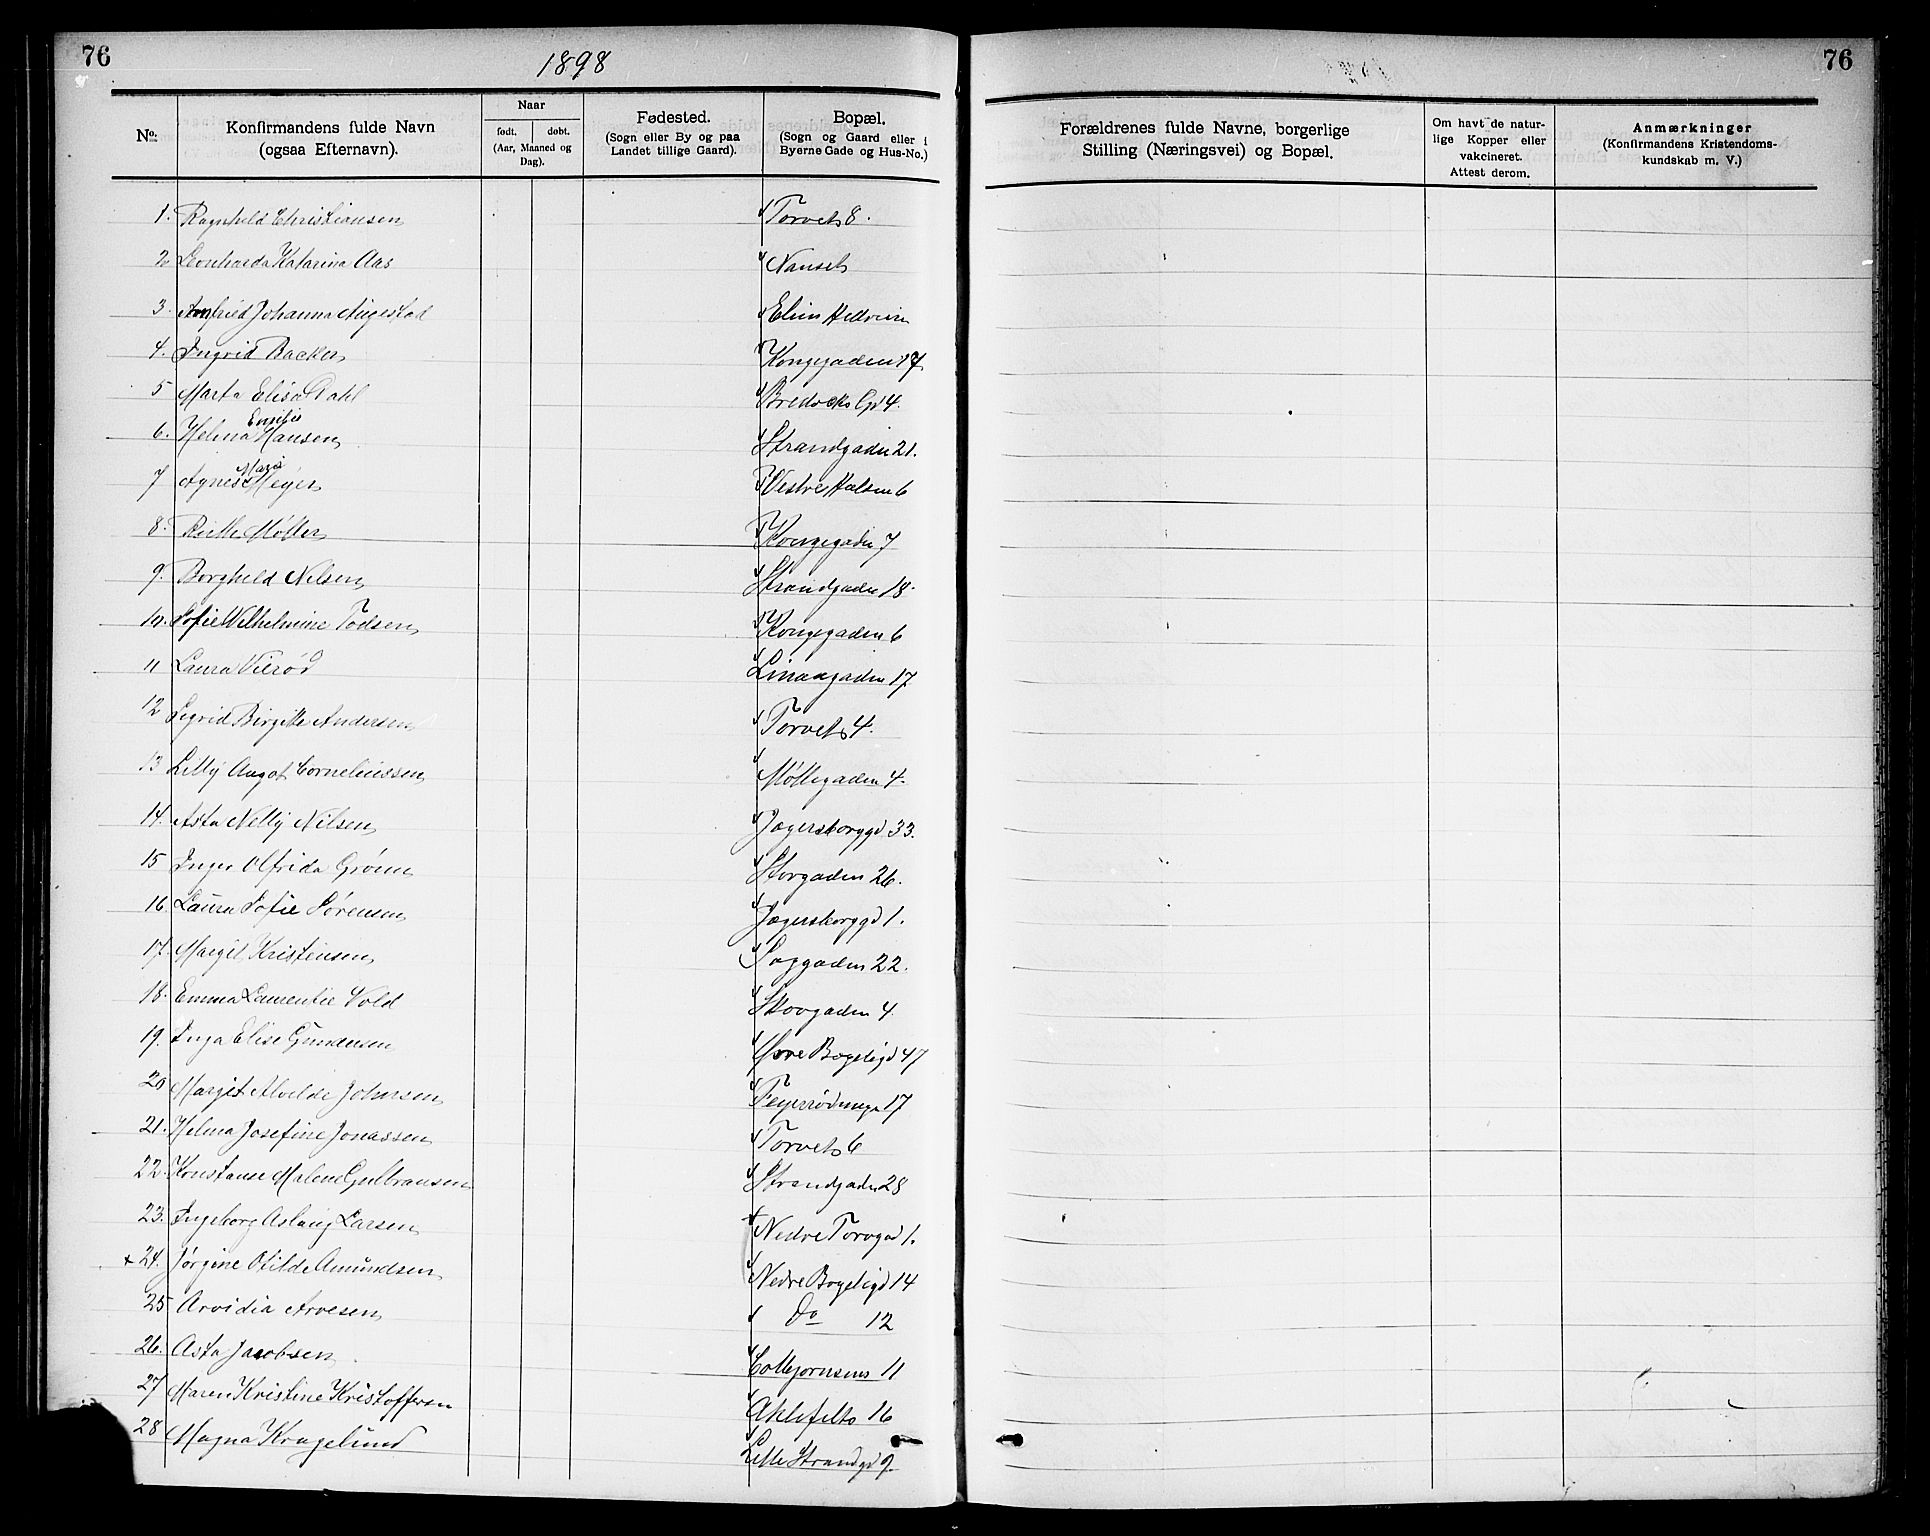 76
1898
76
No. Konfirmandens fulde Navn (ogsaa Efternavn).
Naar
født. døbt.
(Aar, Maaned og Dag).
Fødested.
(Sogn eller By og paa Landet tillige Gaard).
Bopæl.
(Sogn og Gaard eller i Byerne Gade og Hus-No.)
Forældrenes fulde Navne, borgerlige Stilling (Næringsvei) og Bopæl.
Om havt de naturlige Kopper eller vakcineret. Attest derom.
Anmærkninger
(Konfirmandens Kristendomskundskab m. V.)
1. Ragnhild Christiansen Torvet 8.
2 Leonharda Katarina Aas Nanset
3. Johanna Augestad Elim
4. Ingrid Backer Kongegaden 17
5 Marta Elise Dahl 4.
6. Helena Emilie Hansen Strandgaden 21.
7 Agnes Marie Meyer Vestre Halsen 6
8. Møller Kongegaden 7
9. Borghild Nilsen Strandgaden 18.
10. Sofie Wilhelmine Todsen Kongegaden 6
11 Laura Vierød Linaagaden 17
12 Sigrid Birgitte Andersen Torvet 4.
13 Lilly Aagot Corneliussen Møllegaden 4.
14. Asta Nelly Nilsen Jegersborggd. 33.
15 Inger Olfrida Grønn Storgaden 26.
16 Laura Sofie Sørensen Jegersborggd 1.
17. Margit Kristensen Saggaden 22.
18. Emma Laurentie Vold Skovgaden 4.
19. Inga Elise Gundersen Øvre Bøgeligd 47
20 Margit Alvilde Johnsen 17
21. Helma Josefine Jonassen Torvet 6
22. Konstanse Malene Gulbransen Strandgaden 28
23. Ingeborg Aslaug Larsen Nedre Torvgd 1.
+ 24. Jørgine Otilde Amundsen Nedre Bøgeligd 14
25 Arvidia Arvesen Do 12
26. Asta Jacobsen Colbjørnsens 11
27 Maren Kristine Kristoffersen 16
28 Magna Kragelund Lille Strandgd 9.